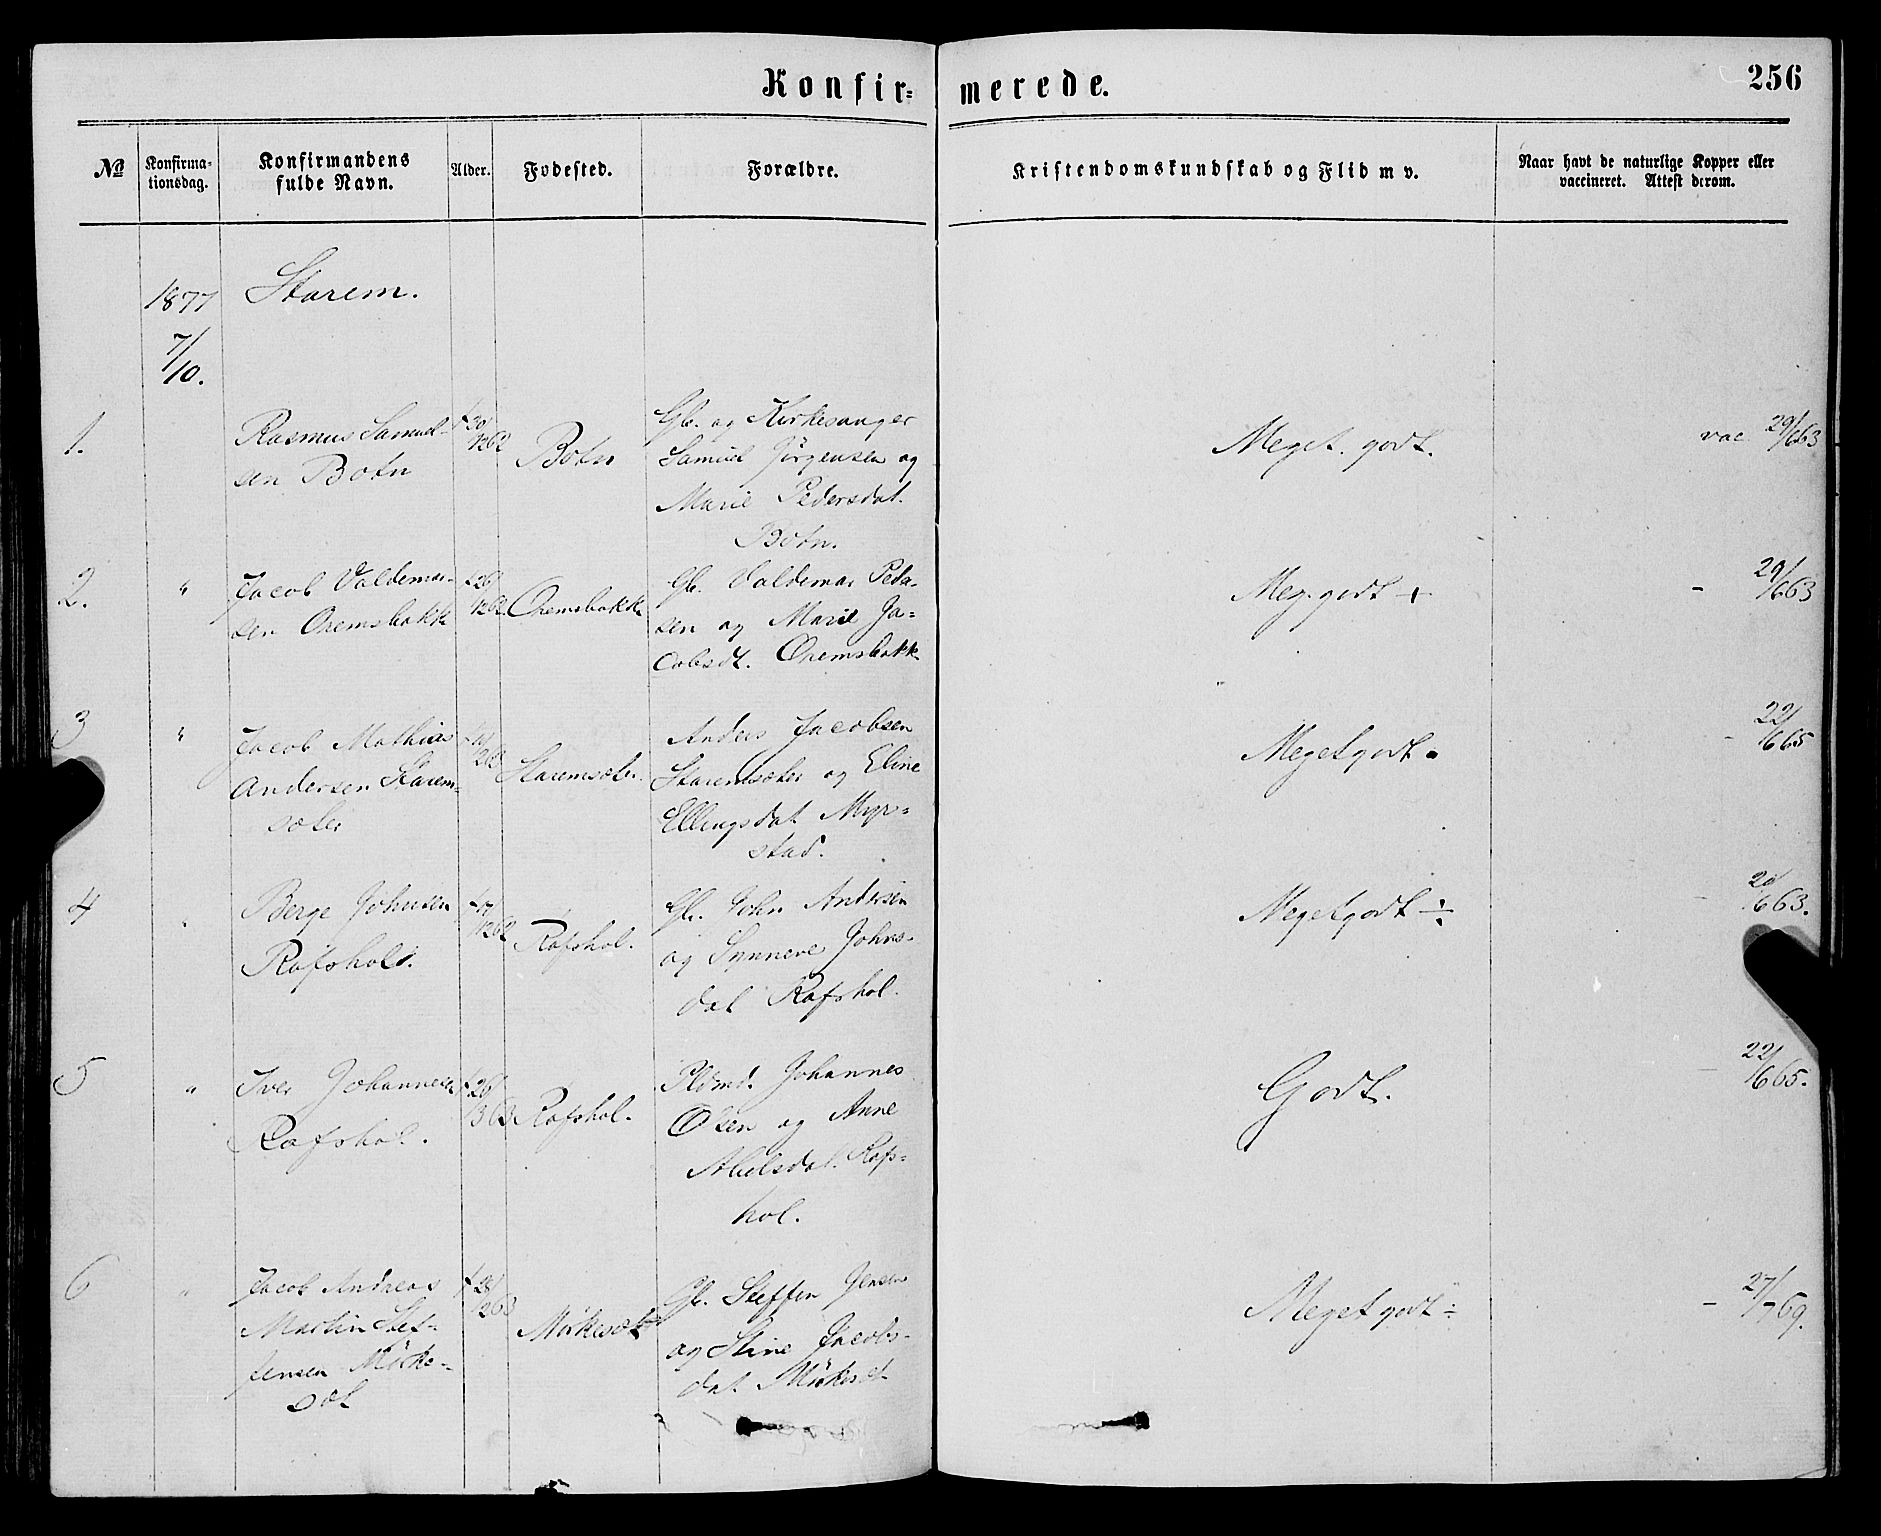 Konfir=
merede.
256
No
Konfirma-
tionsdag.
Konfirmandens
fulde Navn.
Alder.
Fodested.
Forældre.
Kristendomskundskab og Flid m v.
Naar havt de naturlige Kopper eller
vaccineret. Attest derom.
1877
Starem.
7/10.
1.
Rasmus Samuel-
sen Botn
30/12 62
Botn
Gb. og Kirkesanger
Samuel Jörgensen og
Marie Pedersdat.
Botn.
Meget godt.
vac 29/6 63
2.
"
Jacob Valdemar-
sen Oremsbakk
26/12 62
Oremsbakk
Gb. Valdemar Peder-
sen og Marie Ja=
cobsdt. Oremsbakk
Meg. godt +
- 29/6 63
3
"
Jacob Mathias
Andersen Starem-
sæter
Staremsæter.
Anders Jacobsen
Staremsæter og Eline
Ellingsdat Myr=
stad.
Meget godt.
- 22/6 65
4
"
Berge Johnsen
Rafshol.
Rafshol.
Gb. John Andersen
og Synneve Johns-
dat Rafshol.
Meget godt ÷
- 6 63.
5
"
Iver Johannesen
Rafshol.
26/3 63
Rafshol.
Johannes
Olsen og Anne
Rafs=
hol.
Godt.
- 22/6 65.
6
"
Jacob Andreas
Martin Stef-
fensen Mörke-
sæt
28/12 63
Mörkesæt
Gb. Steffen Jensen
og Stine Jacobs-
dat Mörkesæt
Meget godt ÷
- 27/7 69.